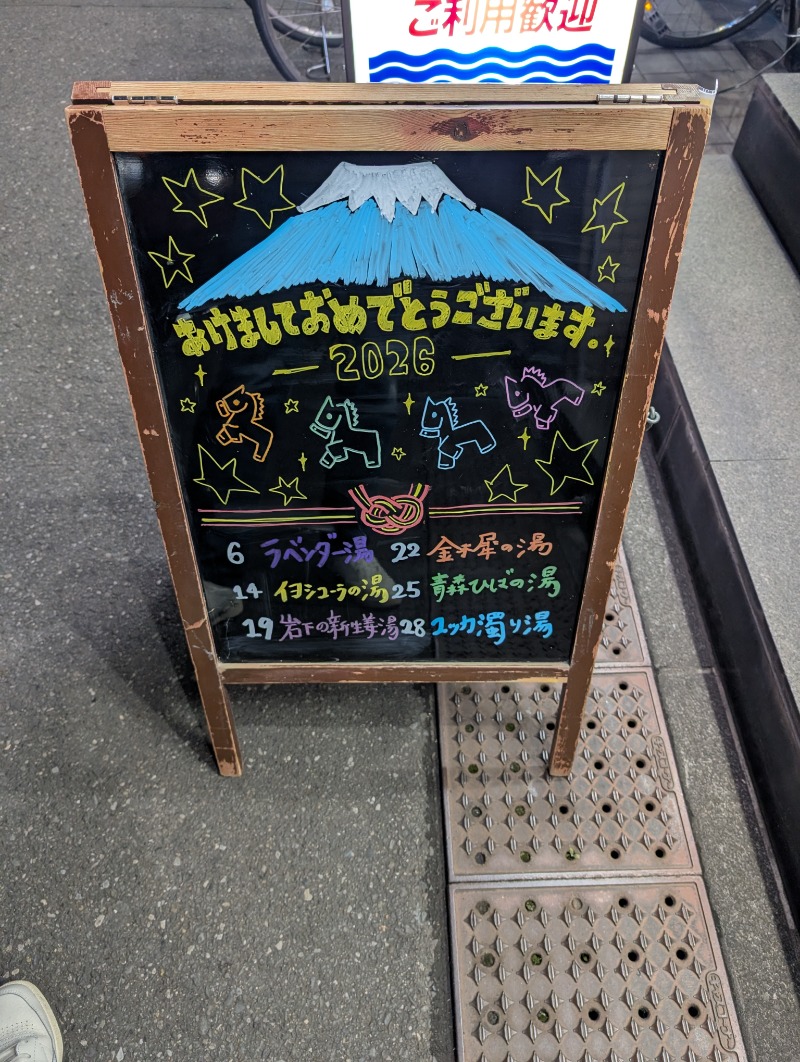 ご利用歓迎
あけましておめでとうございます。
2026
6 ラベンダー湯 22 金木犀の湯
14 イヨシコーラの湯 25 青森ひばの湯
19 岩下の新生姜湯 28 ユッカ濁り湯